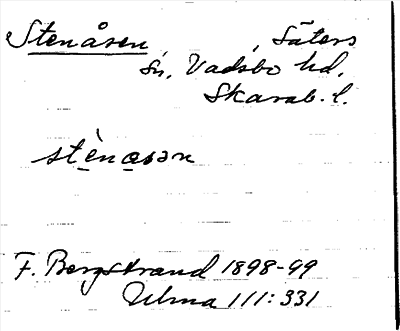 Stenåsen, Säters
Sn, Vadsbo hd.
Skarab. l.
stènɑsən
F. Bergstrand 1898-99
Ulma 111:331